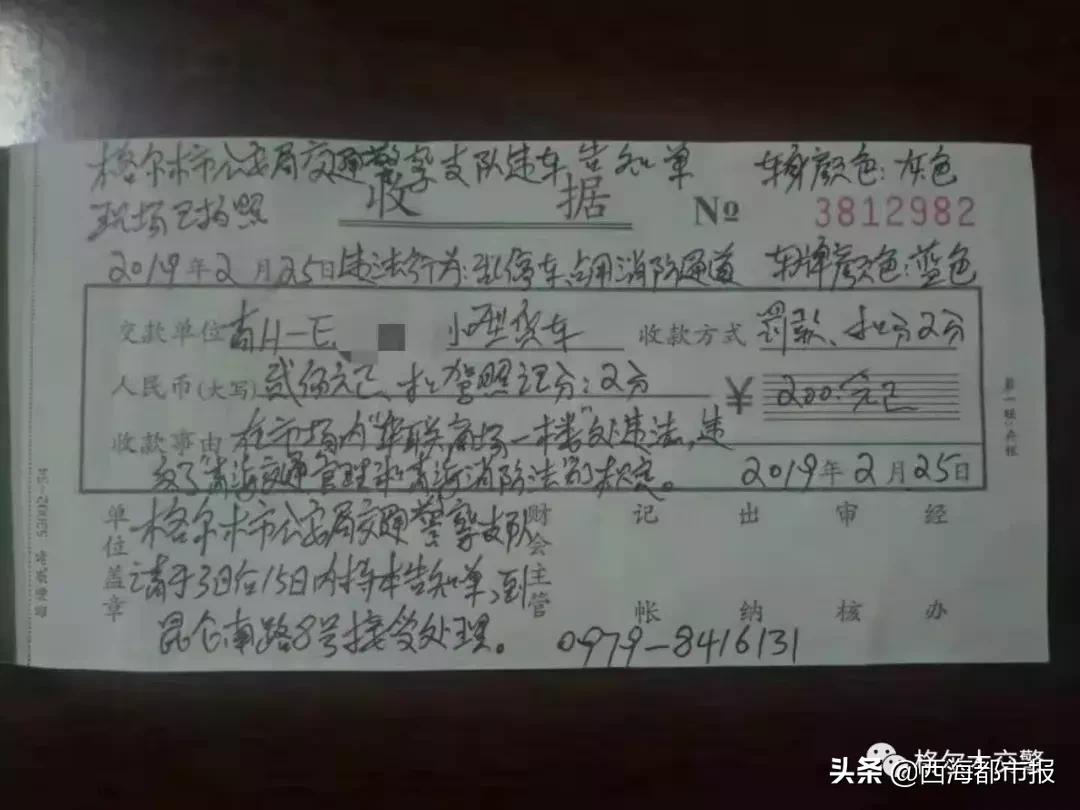 格尔木市公安局交通警察支队违车告知单 车身颜色:灰色
现场已拍照 收据 № 3812982
2019年2月25日违法行为:乱停车、占用消防通道 车牌颜色:蓝色
交款单位 青H-E 小型货车 收款方式 罚款、扣分2分
人民币(大写) 贰佰元正 扣驾照记分:2分 ¥ 200.元正
收款事由 在市场内"华联商场一楼"处违法,违
反了"青海交通管理和青海消防法"的规定。 2019年2月25日
单位盖章 财会主管 记帐 出纳 审核 经办
格尔木市公安局交通警察支队
请于3日后15日内持本告知单,到
昆仑南路8号接受处理。 0979-8416131
格尔木交警
头条 @西海都市报